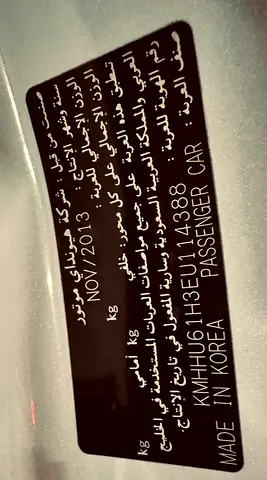 صنعت من قبل : شركة هيونداي موتور
سنة وشهر الإنتاج : NOV/2013
الوزن الإجمالي للعربة : kg
الوزن الإجمالي على كل محور: خلفي kg أمامي kg
تطبق هذه العربة على جميع مواصفات العربات المستخدمة في الخليج
العربي والمملكة العربية السعودية وسارية المفعول في تاريخ الإنتاج.
رقم الهوية للعربة : KMHHU61H3EU114388
صنف العربة : PASSENGER CAR
MADE IN KOREA